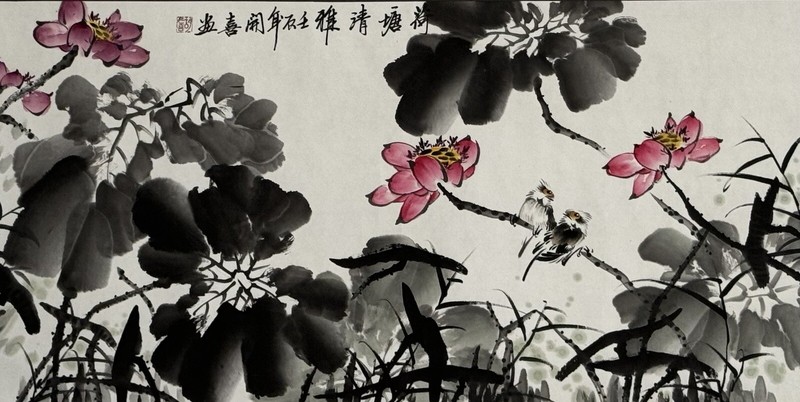 荷塘清雅壬辰年開喜画